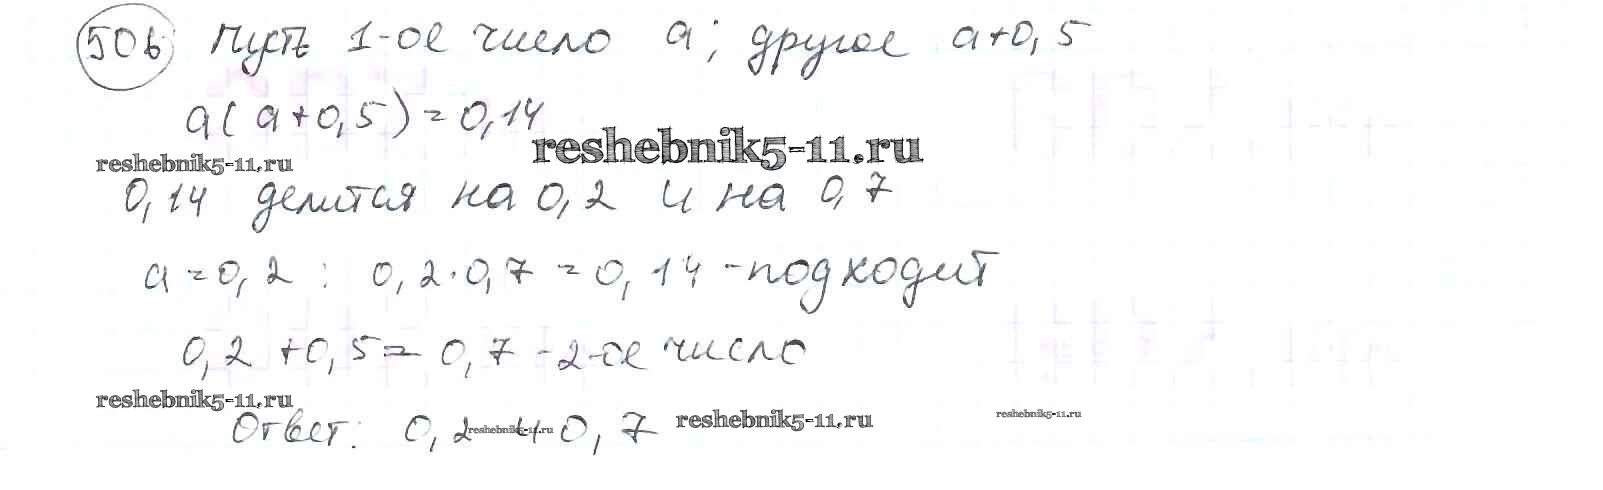 506 Пусть 1-ое число a; другое a+0,5
a(a+0,5)=0,14
reshebnik5-11.ru
reshebnik5-11.ru
0,14 делится на 0,2 и на 0,7
a=0,2: 0,2·0,7=0,14 -подходит
0,2+0,5=0,7 -2-ое число
reshebnik5-11.ru
reshebnik5-11.ru
reshebnik5-11.ru
Ответ: 0,2 и 0,7
reshebnik5-11.ru